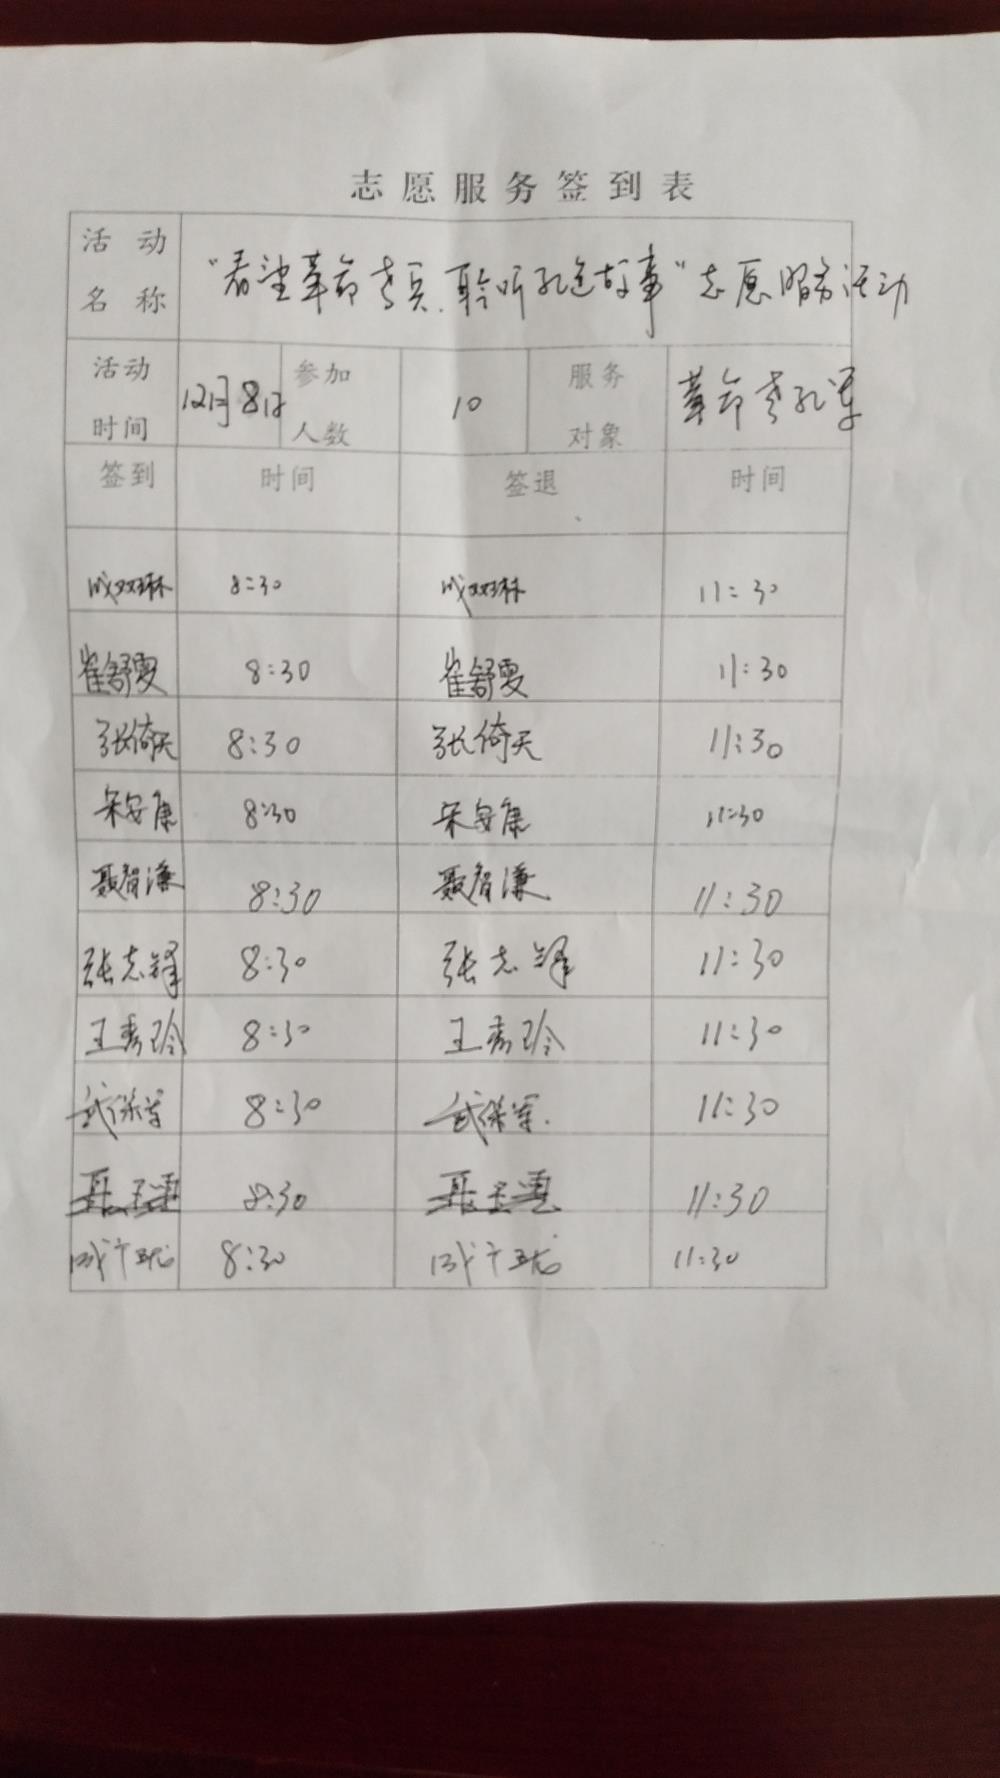 志愿服务签到表
活动名称 "看望革命老兵.聆听红色故事"志愿服务活动
活动时间 12月8日 参加人数 10 服务对象 革命老红军
签到 时间 签退 时间
8:30 11:30
崔舒雯 8:30 崔舒雯 11:30
张倚天 8:30 张倚天 11:30
宋安康 8:30 宋安康 11:30
聂智谦 8:30 聂智谦 11:30
张志锋 8:30 张志锋 11:30
王秀玲 8:30 王秀玲 11:30
武保军 8:30 武保军. 11:30
8:30 11:30
8:30 11:30